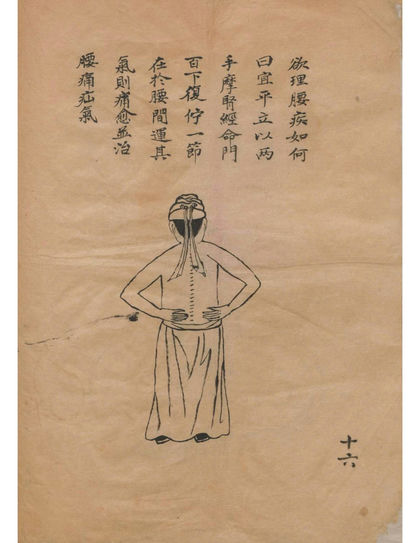 欲理腰疾如何
曰宜平立以两
手摩腎經命門
百下復佇一節
在於腰間運其
氣則痛愈並治
腰痛疝氣
十六